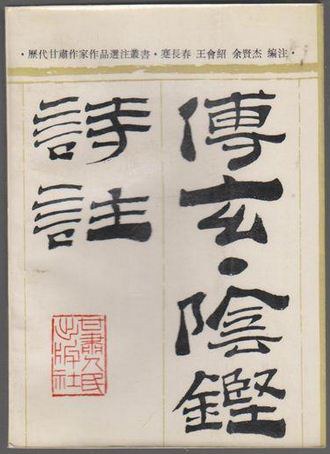 ·歷代甘肅作家作品選注叢書·蹇長春 王會紹 余賢杰 編注·
傅玄·陰鏗
詩註
甘肅人民
出版社